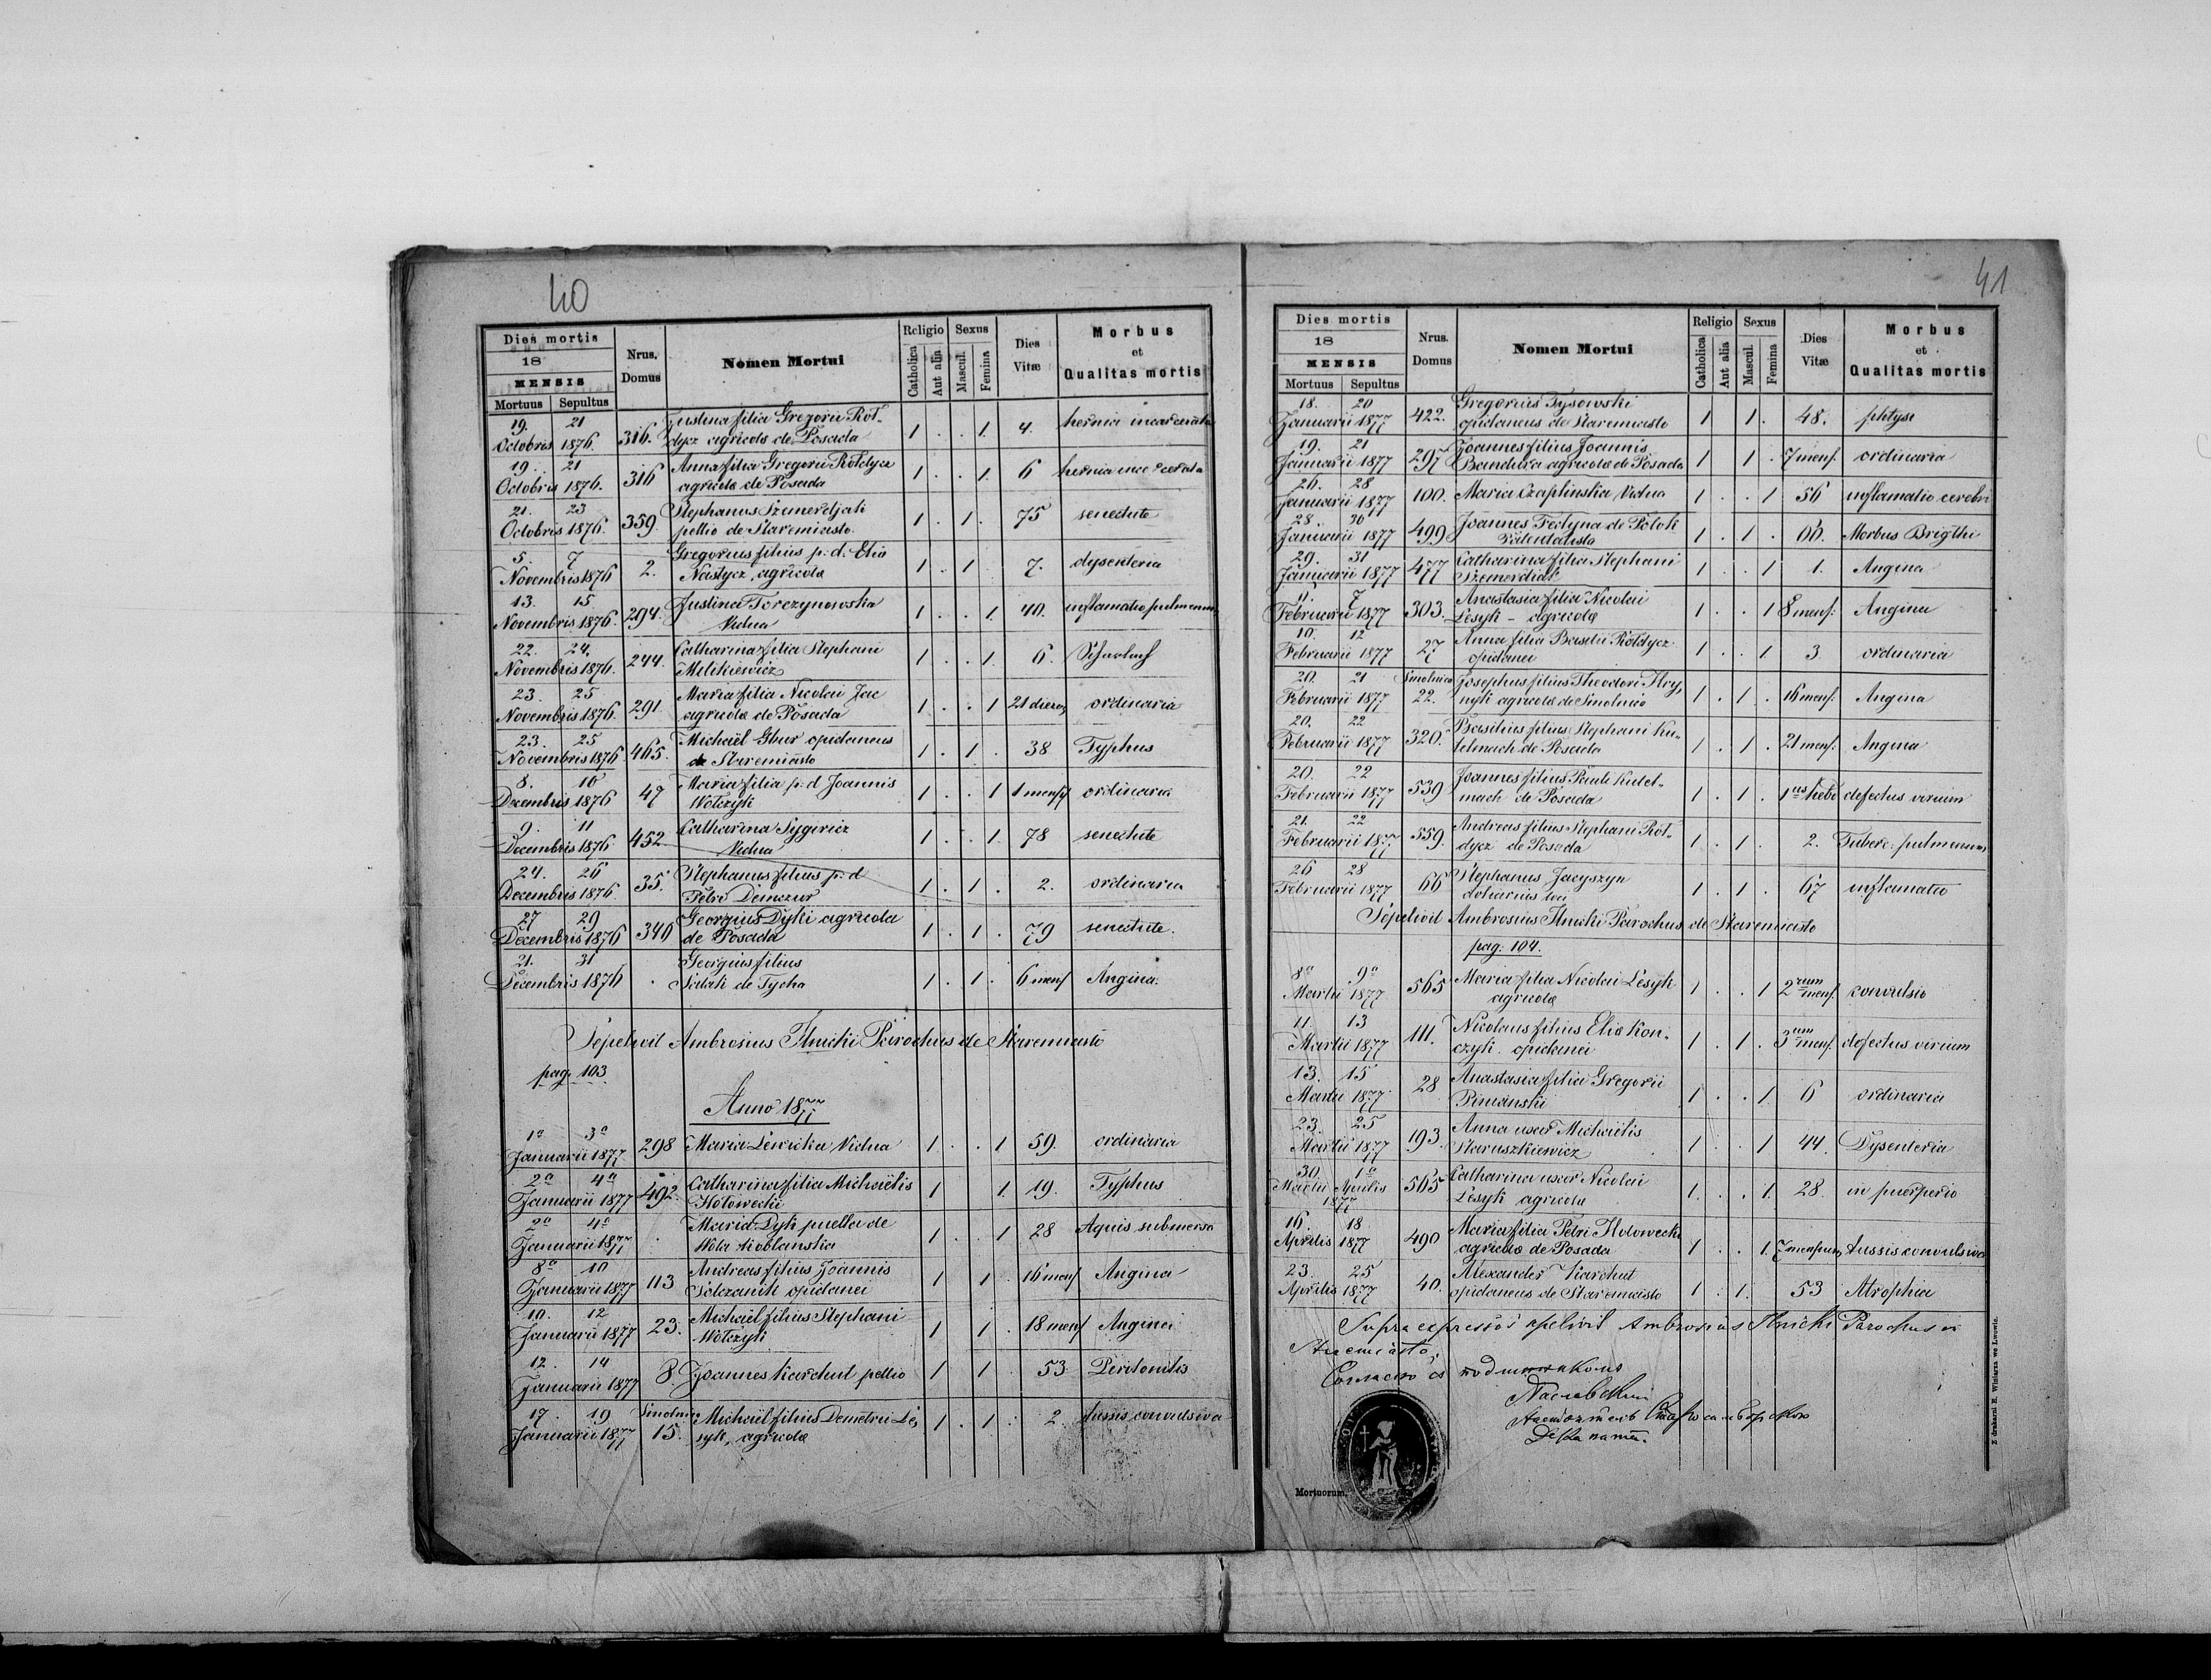 40
Dies mortis
18
MENSIS
Mortuus Sepultus
Nrus. Domus
Nomen Mortui
Religio
Catholica
Aut alia
Sexus
Mascul.
Femina
Dies Vitæ
Morbus et Qualitas mortis
19. 21 Justina filia Gregorii Roł-
Octobris 1876. 316. dycz agricola de Posada 1 . . 1. 4. hernia incarcerata
19. 21 Anna filia Gregorii Rołdycz
Octobris 1876. 316 agricola de Posada 1 . . 1. 6 hernia incarcerata
21. 23 Stephanus Szmerdjak
Octobris 1876. 359. pellio de Staremiasto 1 . 1. 75 senectute
5. 7 Gregorius filius p. d. Elia
Novembris 1876 2. Nastycz, agricola 1 . 1 7. dysenteria
13. 15 Justina Torczynowska
Novembris 1876. 294. Vidua 1 . . 1. 40. inflamatio pulmonum
22. 24. Catharina filia Stephani
Novembris 1876. 244. Milikiewicz 1 . . 1. 6.
23. 25 Maria filia Nicolai Jac
Novembris 1876. 291. agricola de Posada 1 . . 1 21 dierum ordinaria
23. 25 Michaël Gbur opidaneus
Novembris 1876 465. de Staremiasto 1 . 1 . 38 Typhus
8. 10 Maria filia p. d Joannis
Decembris 1876 47 Wołczyk 1 . . 1 1 mens ordinaria
9. 11 Catharina Sygericz
Decembris 1876 452. Vidua 1 . . 1. 78 senectute
24. 26 Stephanus filius p. d
Decembris 1876. 35. Petri Demczur 1 . 1 . 2. ordinaria
27 29 Georgius Dyki agricola
Decembris 1876 340 de Posada 1 . 1 . 79 senectute.
21. 31 Georgius filius
Decembris 1876 . de Tycha 1 . 1 . 6 mens Angina.
Sepelivit Ambrosius Ilnicki Parochus de Staremiasto
pag. 103
Anno 1877
1a 3a
Januarii 1877. 298 Maria Lewicka Vidua 1 . . 1 59. ordinaria
2a 4a Catharina filia Michaëlis
Januarii 1877 492. Hołowecki 1 1. 19. Typhus
2a 4a Maria Dyk puella de
Januarii 1877 . Wola Koblanska 1 . . 1 28 Aquis submersa
8a 10 Andreas filius Joannis
Januarii 1877 113 Solczanik opidanei 1 1 . 16 mens Angina
10. 12 Michaël filius Stephani
Januarii 1877 23. Wołczyk 1 1 . 18 mens Angina
12. 14
Januarii 1877 8. Joannes Karchut pellio 1 1 . 53 Peritonitis
17. 19 Smolnica Michaël filius Demetrii Le,
Januarii 1877 15. syk, agricola 1 . 1 . 2. tussis convulsiva
41
Dies mortis
18
MENSIS
Mortuus Sepultus
Nrus. Domus
Nomen Mortui
Religio
Catholica
Aut alia
Sexus
Mascul.
Femina
Dies Vitæ
Morbus et Qualitas mortis
18. 20 Gregorius Tysowski
Januarii 1877 422. opidaneus de Staremiasto 1 1. 48. phtysi
19. 21 Joannes filius Joannis
Januarii 1877 297 Bandura agricola de Posada 1 1 . 7 mens. ordinaria
26. 28
Januarii 1877 100. Maria Czaplinska Vidua 1 . . 1 56 inflamatio cerebri
28. 30 Joannes Fedyna de Potok
Januarii 1877 499 1 . 1 . 60. Morbus Brigthi
29. 31 Catharina filia Stephani
Januarii 1877 477 Szmerdiak 1 . 1 1. Angina
7 Anastasia filia Nicolai
Februarii 1877 303. Lesyk - agricola 1 . . 1 8 mens: Angina
10. 12 Anna filia Basilii Rołdycz
Februarii 1877 27 opidanei 1 . . 1. 3 ordinaria
20. 21 Smolnica Josephus filius Theodori Hry,
Februarii 1877 22. nyk agricola de Smolnica 1 . 1 . 16 mens. Angina
20. 22 Basilius filius Stephani Ku-
Februarii 1877 320. telmach de Posada 1 . 1 . 21 mens: Angina
20. 22 Joannes filius Pauli Kutel-
Februarii 1877 539 mach de Posada 1 . 1 . defectus virium
21. 22 Andreas filius Stephani Roł-
Februarii 1877 559. dycz de Posada 1 . 1 . 2. Tuberc: pulmonum
26 28 Stephanus Jacyszyn
Februarii 1877 66 doliarius 1 . 1 . 67 inflamatio
Sepelivit Ambrosius Ilnicki Parochus de Staremiasto
pag: 104.
8a 9a Maria filia Nicolai Lesyk
Martii 1877 565 agricola 1 . . 1 2rum mens. convulsio
11. 13 Nicolaus filius Eliæ Kon-
Martii 1877 111. czyk opidanei 1 . 1 . 3um mens. defectus virium
13. 15 Anastasia filia Gregorii
Martii 1877 28 Pimanski 1 . . 1. 6 ordinaria
23. 25 Anna uxor Michaëlis
Martii 1877 193. Staruszkiewicz 1 . 1 44. Dysenteria
30. 1a Catharina uxor Nicolai
Martii Aprilis 565 Lesyk agricola 1. . . 1. 28. in puerperio
1877
16. 18 Maria filia Petri Hołowecki
Aprilis 1877 490 agricola de Posada 1 . . 1. 7 mensium tussis convulsiva
23. 25 Alexander Karchut
Aprilis 1877 40. opidaneus de Staremiasto 1 . 1. 53 Atrophia
Supra expressos sepelivit Ambrosius Ilnicki Parochus in
Staremiasto.
Z drukarni E. Winiarza we Lwowie.
Mortuorum.